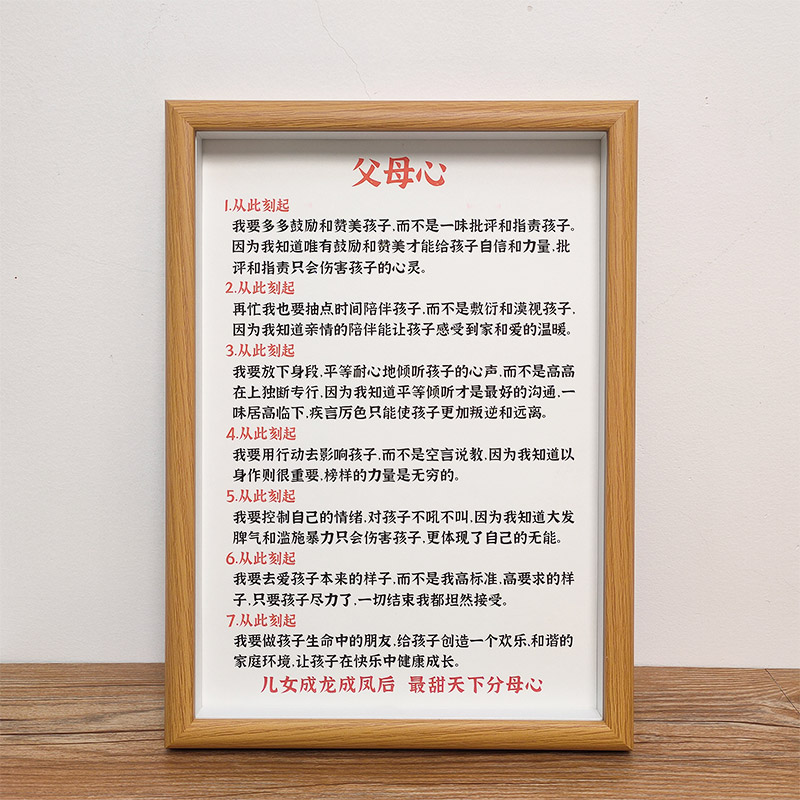 父母心
1.从此刻起
我要多多鼓励和赞美孩子,而不是一味批评和指责孩子。
因为我知道唯有鼓励和赞美才能给孩子自信和力量,批
评和指责只会伤害孩子的心灵。
2.从此刻起
再忙我也要抽点时间陪伴孩子,而不是敷衍和漠视孩子,
因为我知道亲情的陪伴能让孩子感受到家和爱的温暖。
3.从此刻起
我要放下身段,平等耐心地倾听孩子的心声,而不是高高
在上独断专行,因为我知道平等倾听才是最好的沟通,一
味居高临下,疾言厉色只能使孩子更加叛逆和远离。
4.从此刻起
我要用行动去影响孩子,而不是空言说教,因为我知道以
身作则很重要,榜样的力量是无穷的。
5.从此刻起
我要控制自己的情绪,对孩子不吼不叫,因为我知道大发
脾气和滥施暴力只会伤害孩子,更体现了自己的无能。
6.从此刻起
我要去爱孩子本来的样子,而不是我高标准,高要求的样
子,只要孩子尽力了,一切结束我都坦然接受。
7.从此刻起
我要做孩子生命中的朋友,给孩子创造一个欢乐,和谐的
家庭环境,让孩子在快乐中健康成长。
儿女成龙成凤后 最甜天下分母心